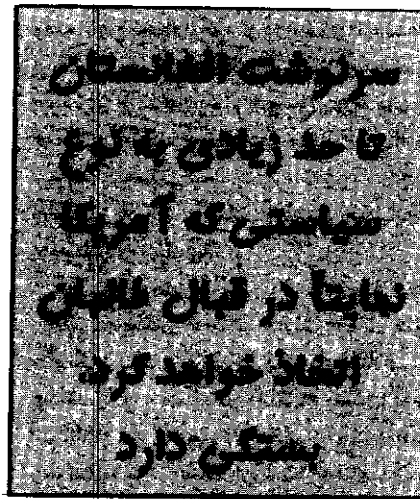 سرنوشت افغانستان
تا حد زیادی به نوع
سیاستی که آمریکا
نهایتاً در قبال طالبان
اتخاذ خواهد کرد،
بستگی دارد